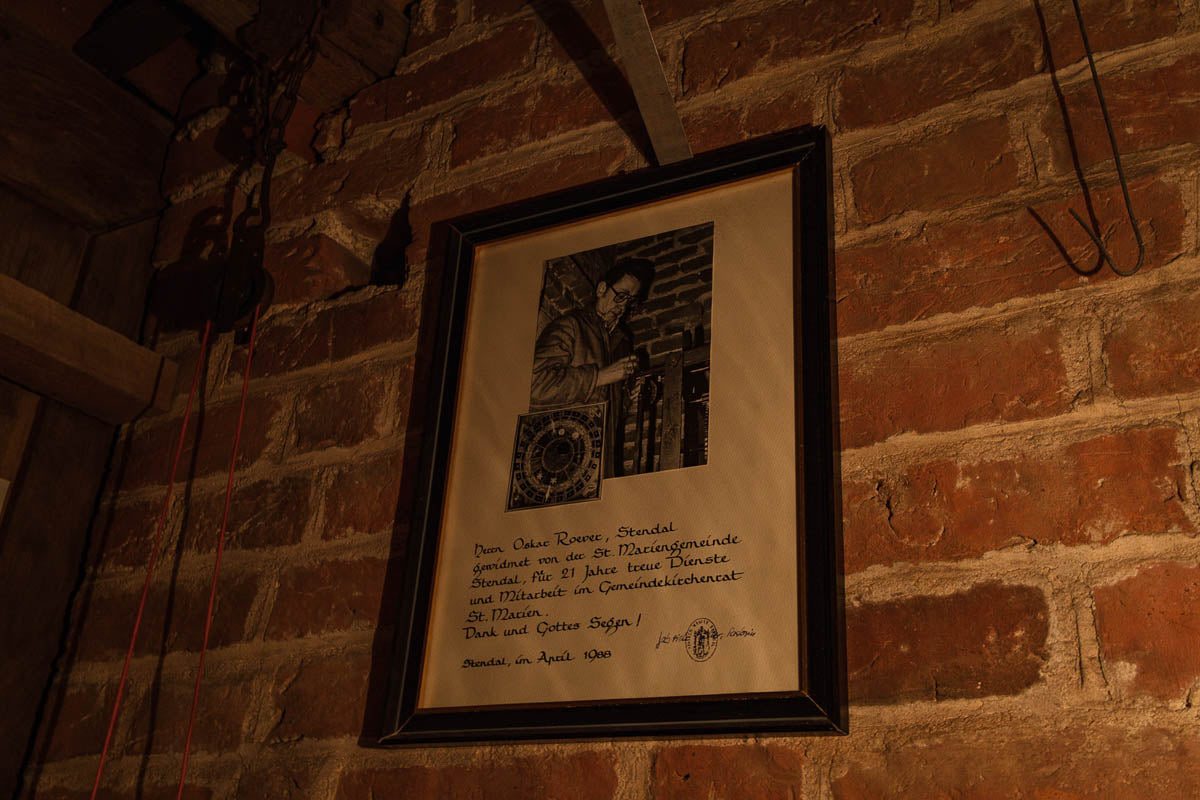 Herrn Oskar Roever, Stendal
gewidmet von der St. Mariengemeinde
Stendal, für 21 Jahre treue Dienste
und Mitarbeit im Gemeindekirchenrat
St. Marien.
Dank und Gottes Segen!
Stendal, im April 1988